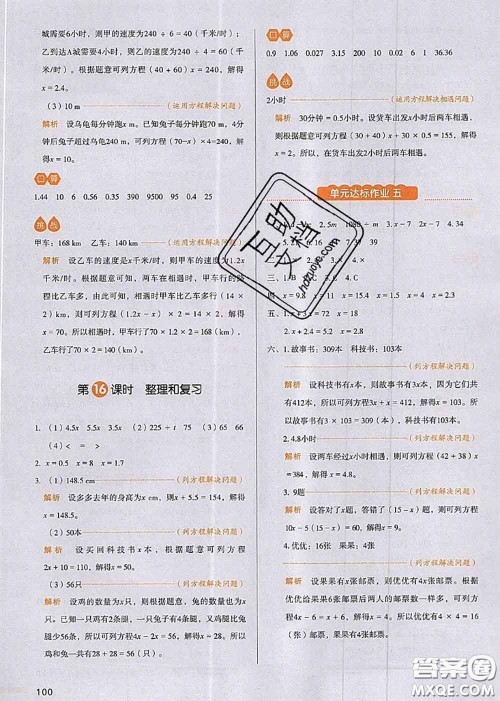 城需要6小时，则甲的速度为240 ÷ 6 = 40（千米/时）；
乙到达A城需要4小时，则乙的速度为240 ÷ 4 = 60（千
米/时）。根据题意可列方程（40 + 60）x = 240，解得
x = 2.4。
（3）10 m （运用方程解决问题）
解析 设乌龟每分钟跑x m。已知兔子每分钟跑70 m，4分
钟后兔子超过乌龟240 m，可列方程（70－x）× 4=240，解
得x = 10。
口算
1.44 10 6 0.56 350 95 1900 0.195 0.44
挑战
甲车：168 km 乙车：140 km （运用方程解决问题）
解析 设乙车的速度是x千米/时，则甲车的速度是1.2x
千米/时。根据题意可知，两车在相遇时，甲车行的路
程比乙车多，由此可知，相遇时甲车比乙车多行（14 ×
2）km，则可列方程（1.2x－x）× 2 = 14 × 2，解得
x = 70。所以相遇时，甲车行了70 × 1.2 × 2 = 168（km），
乙车行了70 × 2 = 140（km）。
第16课时 整理和复习
1.（1）4.5x 5.5x 3.5x （2）225 ÷ t （3）65 66
（4）< = >
2. x = 0.5 x = 8 x = 1.7
3.（1）148.5 cm （列方程解决问题）
解析 设多多去年的身高为x cm，则x + 8.5 = 157，解得
x = 148.5。
（2）50本 （列方程解决问题）
解析 设买回科技书x本，根据题意可列方程
2x + 10 = 110，解得x = 50。
（3）56只 （列方程解决问题）
解析 设鸡的数量为x只，根据题意，兔的数量也为x
只。由于一只鸡有2条腿，一只兔子有4条腿，鸡腿比兔
腿少56条，所以可列方程4x－2x = 56，解得x = 28。所
以鸡和兔一共有28 + 28 = 56（只）。
100
口算
0.9 1.06 0.027 3.15 10.2 0.06 6 1 36.36
挑战
2小时 （运用方程解决相遇问题）
解析 30分钟 = 0.5小时。设货车出发x小时后两车相遇，
则根据题意可列方程（x + 0.5）× 30 + 30x = 135，解得
x = 2。所以，在货车出发2小时后两车相遇。
单元达标作业 五
3. x－7 2x－7 4. 34
三、1. A 2. A
四、x = 9.8
五、1.
2. x + 2.4 = 2.8 x = 0.4
六、1. 故事书：309本 科技书：103本
（列方程解决问题）
解析 设科技书有x本，则故事书有3x本，因为它们共
有412本，所以可列方程3x + x = 412，解得x = 103，
103 × 3 = 309（本），所以故事书有309本。
2. 4.8小时 （列方程解决问题）
解析 设两车经过x小时相遇，则可列方程（42 + 38）x
= 384，解得x = 4.8。
3. 9题 （列方程解决问题）
解析 设答对了x题，答错了（15－x）题，则可列方程
10x－5（15－x）= 60，解得x = 9。
4. 优优：16张 果果：4张 （列方程解决问题）
解析 设果果有x张邮票，则优优有4x张邮票，因为
优优给果果6张后两人的邮票数一样多，所以可列方
程4x－6 = x + 6，解得x = 4。所以优优有4 × 4 =
16（张）邮票，果果有4张邮票。
互助文档
hdzuoye.com
答案圈
MXQE.COM